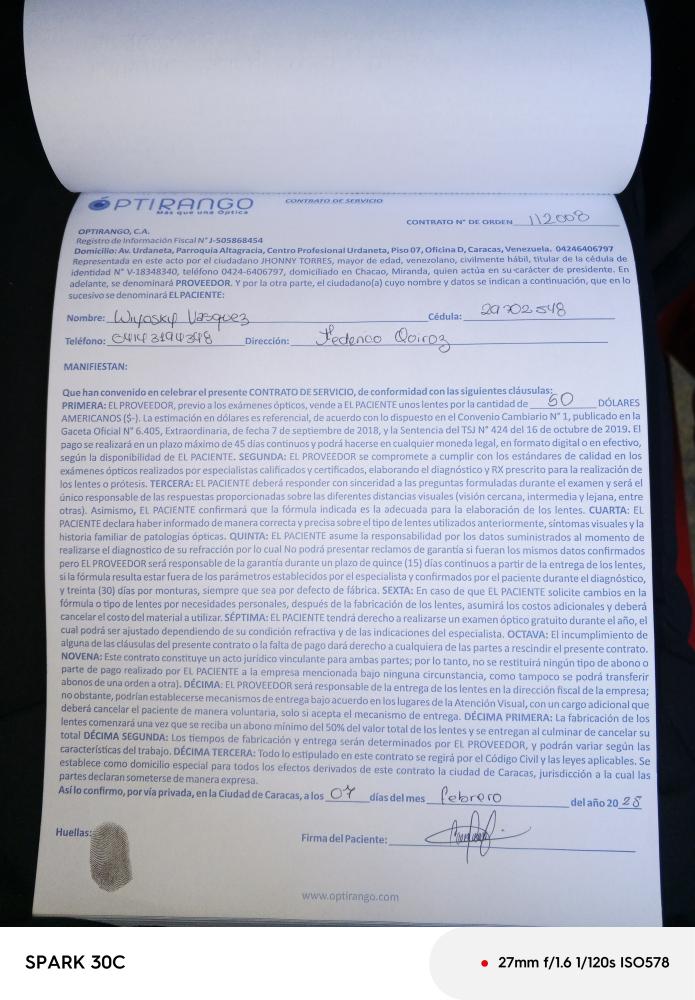 OPTIRANGO
Más que una Óptica
CONTRATO DE SERVICIO
CONTRATO N° DE ORDEN 112008
OPTIRANGO, C.A.
Registro de Información Fiscal N° J-505868454
Domicilio: Av. Urdaneta, Parroquia Altagracia, Centro Profesional Urdaneta, Piso 07, Oficina D, Caracas, Venezuela. 04246406797
Representada en este acto por el ciudadano JHONNY TORRES, mayor de edad, venezolano, civilmente hábil, titular de la cédula de
identidad N° V-18348340, teléfono 0424-6406797, domiciliado en Chacao, Miranda, quien actúa en su carácter de presidente. En
adelante, se denominará PROVEEDOR. Y por la otra parte, el ciudadano(a) cuyo nombre y datos se indican a continuación, que en lo
sucesivo se denominará EL PACIENTE:
Nombre: Vasquez Cédula: 29702548
Teléfono: 04143194348 Dirección: Federico Quiroz
MANIFIESTAN:
Que han convenido en celebrar el presente CONTRATO DE SERVICIO, de conformidad con las siguientes cláusulas:
PRIMERA: EL PROVEEDOR, previo a los exámenes ópticos, vende a EL PACIENTE unos lentes por la cantidad de 50 DÓLARES
AMERICANOS ($-). La estimación en dólares es referencial, de acuerdo con lo dispuesto en el Convenio Cambiario N° 1, publicado en la
Gaceta Oficial N° 6.405, Extraordinaria, de fecha 7 de septiembre de 2018, y la Sentencia del TSJ N° 424 del 16 de octubre de 2019. El
pago se realizará en un plazo máximo de 45 días continuos y podrá hacerse en cualquier moneda legal, en formato digital o en efectivo,
según la disponibilidad de EL PACIENTE. SEGUNDA: EL PROVEEDOR se compromete a cumplir con los estándares de calidad en los
exámenes ópticos realizados por especialistas calificados y certificados, elaborando el diagnóstico y RX prescrito para la realización de
los lentes o prótesis. TERCERA: EL PACIENTE deberá responder con sinceridad a las preguntas formuladas durante el examen y será el
único responsable de las respuestas proporcionadas sobre las diferentes distancias visuales (visión cercana, intermedia y lejana, entre
otras). Asimismo, EL PACIENTE confirmará que la fórmula indicada es la adecuada para la elaboración de los lentes. CUARTA: EL
PACIENTE declara haber informado de manera correcta y precisa sobre el tipo de lentes utilizados anteriormente, síntomas visuales y la
historia familiar de patologías ópticas. QUINTA: EL PACIENTE asume la responsabilidad por los datos suministrados al momento de
realizarse el diagnostico de su refracción por lo cual No podrá presentar reclamos de garantía si fueran los mismos datos confirmados
pero EL PROVEEDOR será responsable de la garantía durante un plazo de quince (15) días continuos a partir de la entrega de los lentes,
si la fórmula resulta estar fuera de los parámetros establecidos por el especialista y confirmados por el paciente durante el diagnóstico,
y treinta (30) días por monturas, siempre que sea por defecto de fábrica. SEXTA: En caso de que EL PACIENTE solicite cambios en la
fórmula o tipo de lentes por necesidades personales, después de la fabricación de los lentes, asumirá los costos adicionales y deberá
cancelar el costo del material a utilizar. SÉPTIMA: EL PACIENTE tendrá derecho a realizarse un examen óptico gratuito durante el año, el
cual podrá ser ajustado dependiendo de su condición refractiva y de las indicaciones del especialista. OCTAVA: El incumplimiento de
alguna de las cláusulas del presente contrato o la falta de pago dará derecho a cualquiera de las partes a rescindir el presente contrato.
NOVENA: Este contrato constituye un acto jurídico vinculante para ambas partes; por lo tanto, no se restituirá ningún tipo de abono o
parte de pago realizado por EL PACIENTE a la empresa mencionada bajo ninguna circunstancia, como tampoco se podrá transferir
abonos de una orden a otra). DÉCIMA: EL PROVEEDOR será responsable de la entrega de los lentes en la dirección fiscal de la empresa;
no obstante, podrían establecerse mecanismos de entrega bajo acuerdo en los lugares de la Atención Visual, con un cargo adicional que
deberá cancelar el paciente de manera voluntaria, solo si acepta el mecanismo de entrega. DÉCIMA PRIMERA: La fabricación de los
lentes comenzará una vez que se reciba un abono mínimo del 50% del valor total de los lentes y se entregan al culminar de cancelar su
total DÉCIMA SEGUNDA: Los tiempos de fabricación y entrega serán determinados por EL PROVEEDOR, y podrán variar según las
características del trabajo. DÉCIMA TERCERA: Todo lo estipulado en este contrato se regirá por el Código Civil y las leyes aplicables. Se
establece como domicilio especial para todos los efectos derivados de este contrato la ciudad de Caracas, jurisdicción a la cual las
partes declaran someterse de manera expresa.
Así lo confirmo, por vía privada, en la Ciudad de Caracas, a los 07 días del mes febrero del año 2025
Huellas:
Firma del Paciente:
www.optirango.com
SPARK 30C
27mm f/1.6 1/120s ISO578